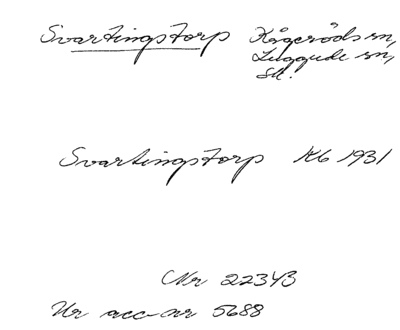 Svartingstorp Kågeröds sn,
Luggude sn,
Sk.
Svartingstorp Kb 1931
Nr 22343
Ur acc-nr 5688